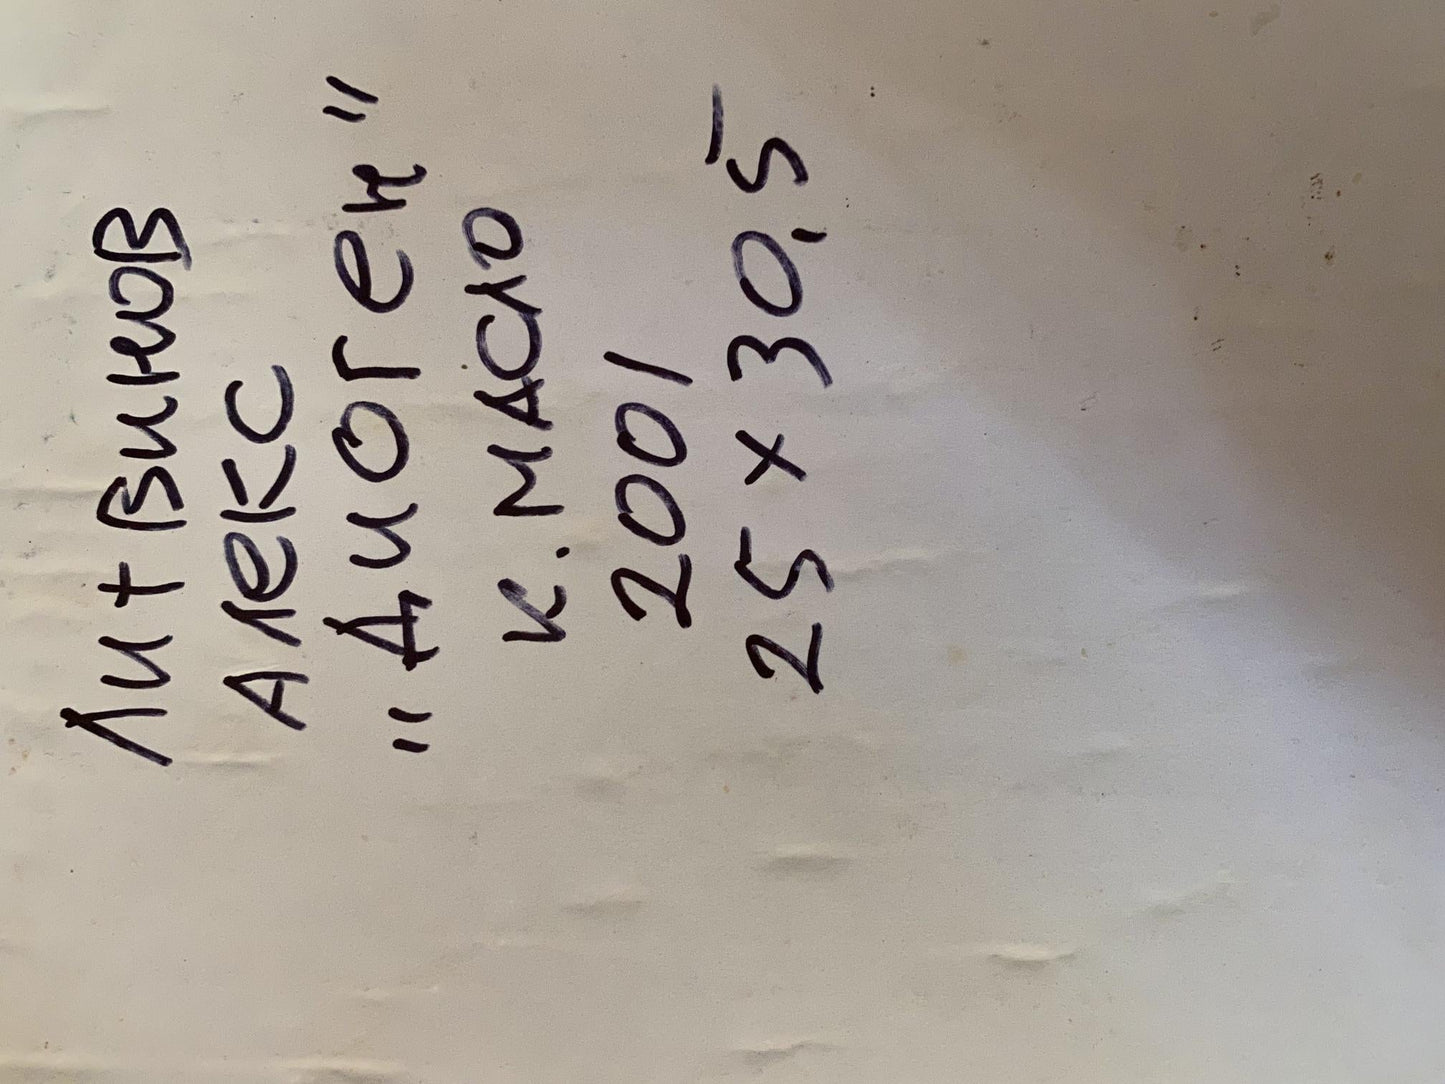 Литвинов
Алекс
"Диоген"
к. масло
2001
25 x 30,5